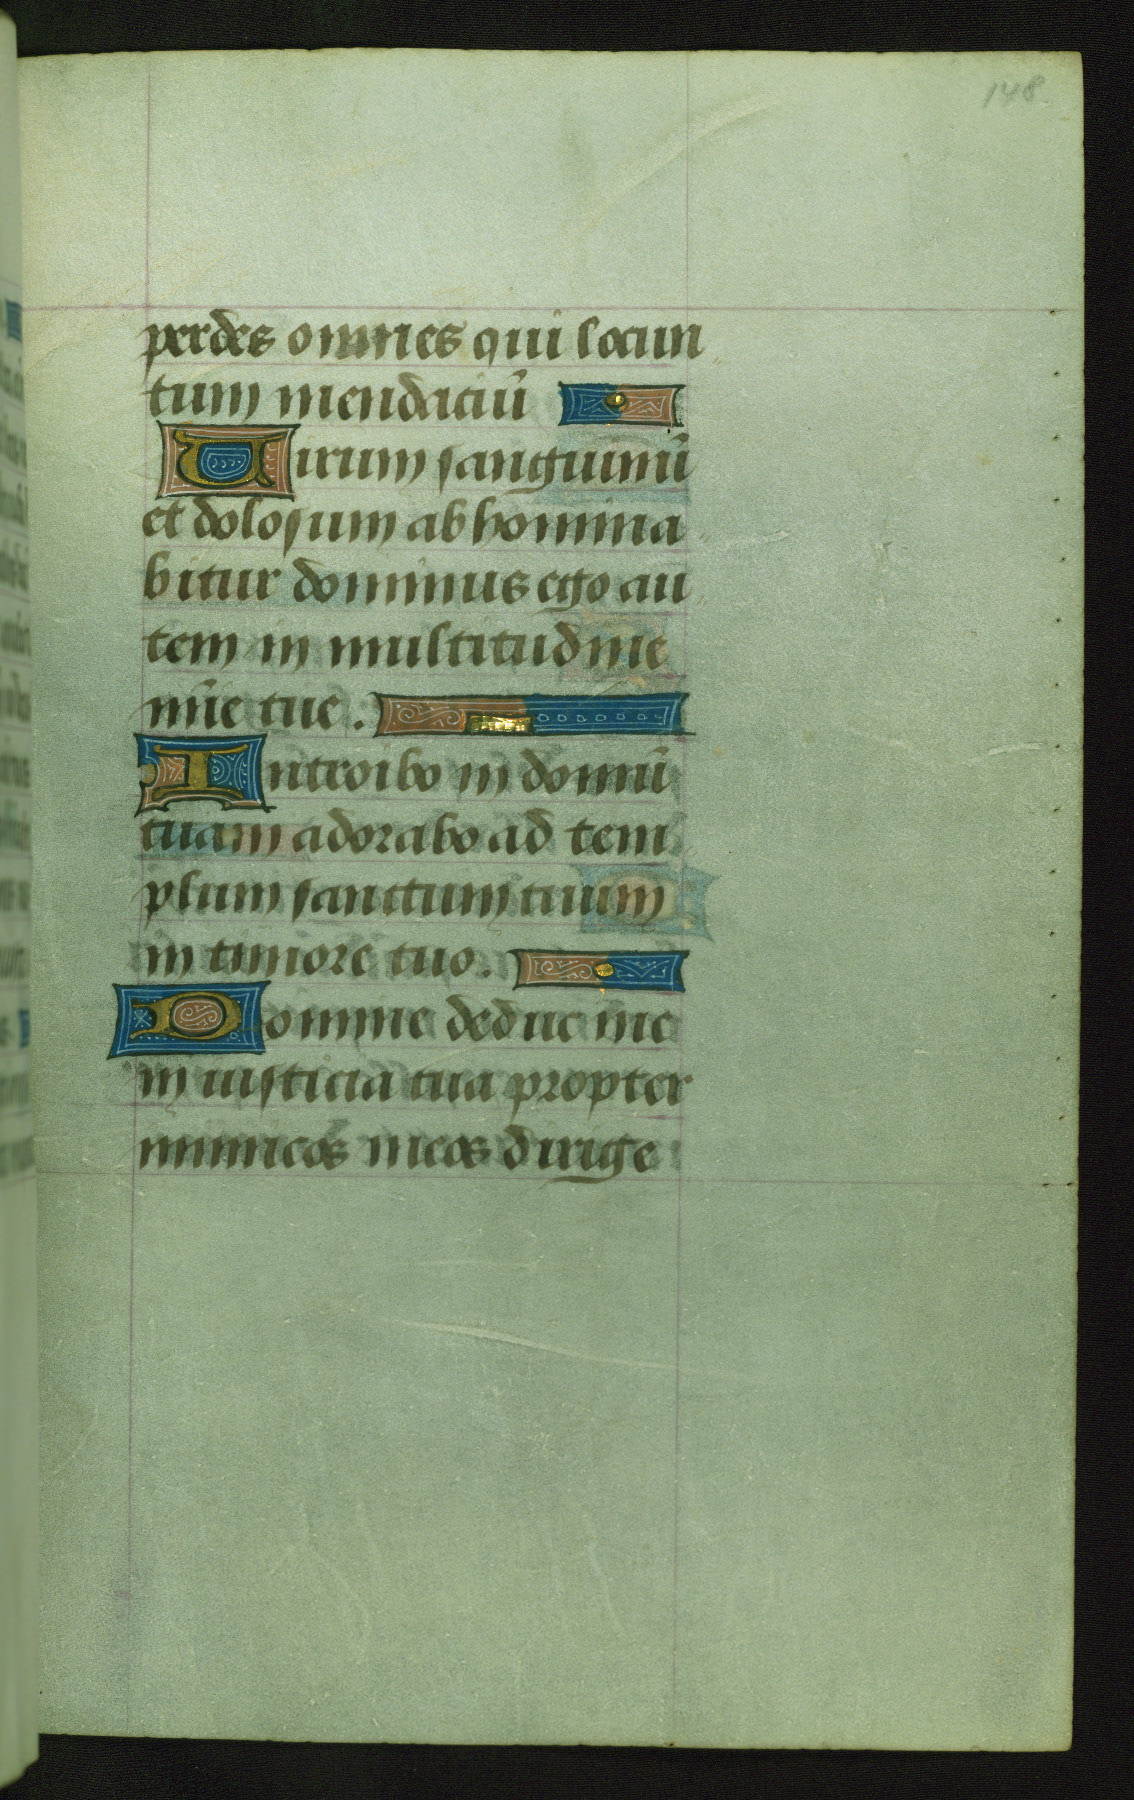 148
perdes omnes qui locun
tum mendaciū
Uirum sanguinū
et dolosum abhomina
bitur dominus ego au
tem in multitudine
mīe tue.
Introibo in domū
tuam adorabo ad tem
plum sanctum tuum
in timore tuo.
Domine deduc me
in iusticia tua propter
inimicos meos dirige